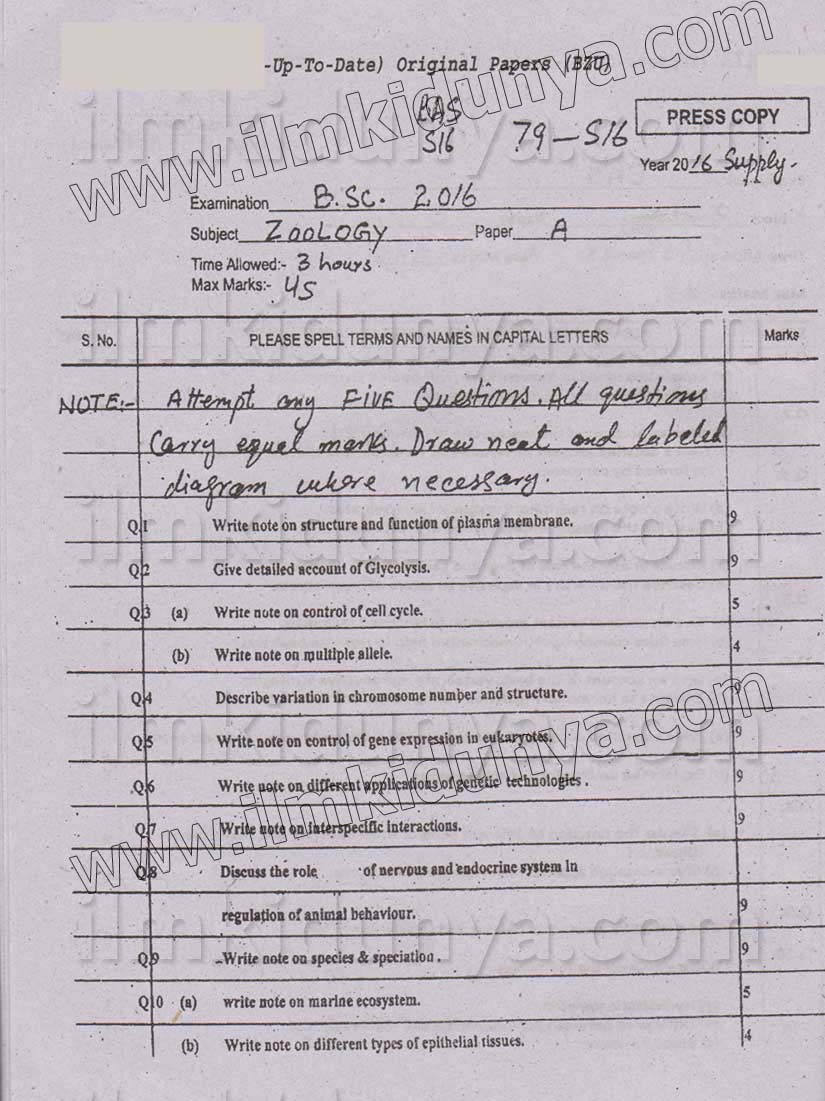 -Up-To-Date) Original Papers (BZU)
S16 79-S16
PRESS COPY
Year 2016 Supply.
Examination B.Sc. 2016
Subject ZOOLOGY Paper A
Time Allowed:- 3 hours
Max Marks:- 45
S. No. PLEASE SPELL TERMS AND NAMES IN CAPITAL LETTERS Marks
NOTE:- Attempt any FIVE Questions. All questions
Carry equal marks. Draw neat and labeled
diagram where necessary.
Q.1 Write note on structure and function of plasma membrane. 9
Q.2 Give detailed account of Glycolysis. 9
Q.3 (a) Write note on control of cell cycle. 5
(b) Write note on multiple allele. 4
Q.4 Describe variation in chromosome number and structure. 9
Q.5 Write note on control of gene expression in eukaryotes. 9
Q.6 Write note on different applications of genetic technologies. 9
Q.7 Write note on interspecific interactions. 9
Q.8 Discuss the role of nervous and endocrine system in
regulation of animal behaviour. 9
Q.9 Write note on species & speciation. 9
Q.10 (a) write note on marine ecosystem. 5
(b) Write note on different types of epithelial tissues. 4
www.ilmkidunya.com
www.ilmkidunya.com
ilmkidunya.com
ilmkidunya.com
ilmkidunya.com
ilmkidunya.com
ilmkidunya.com